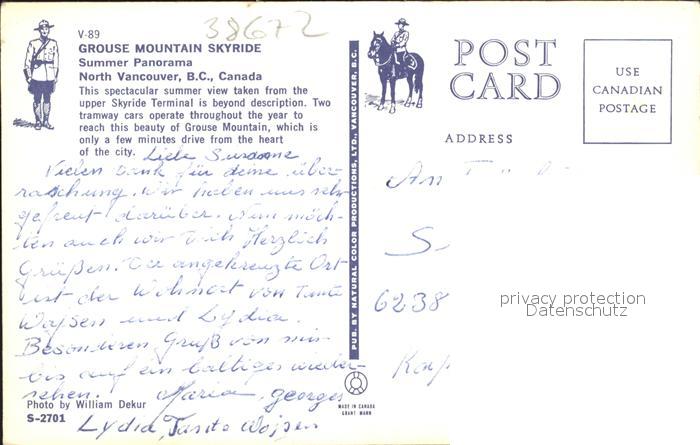 38672
V-89
GROUSE MOUNTAIN SKYRIDE
Summer Panorama
North Vancouver, B.C., Canada
This spectacular summer view taken from the
upper Skyride Terminal is beyond description. Two
tramway cars operate throughout the year to
reach this beauty of Grouse Mountain, which is
only a few minutes drive from the heart
of the city.
Liebe Susanne
Vielen Dank für deine über-
raschung. Wir haben uns sehr
gefreut darüber. Nun möch-
ten auch wir Dich Herzlich
Grüßen. Der angekreuzte Ort
ist der Wohnort von Tante
Wajsen und Lydia.
Besonderen Gruß von mir
bis auf ein baltiges wieder-
sehen. Maria, Georges
Lydia, Tante Wajsen
Photo by William Dekur
S-2701
PUB. BY NATURAL COLOR PRODUCTIONS, LTD., VANCOUVER, B.C.
MADE IN CANADA
GRANT MANN
POST
CARD
USE
CANADIAN
POSTAGE
ADDRESS
An
S
6238
privacy protection
Datenschutz